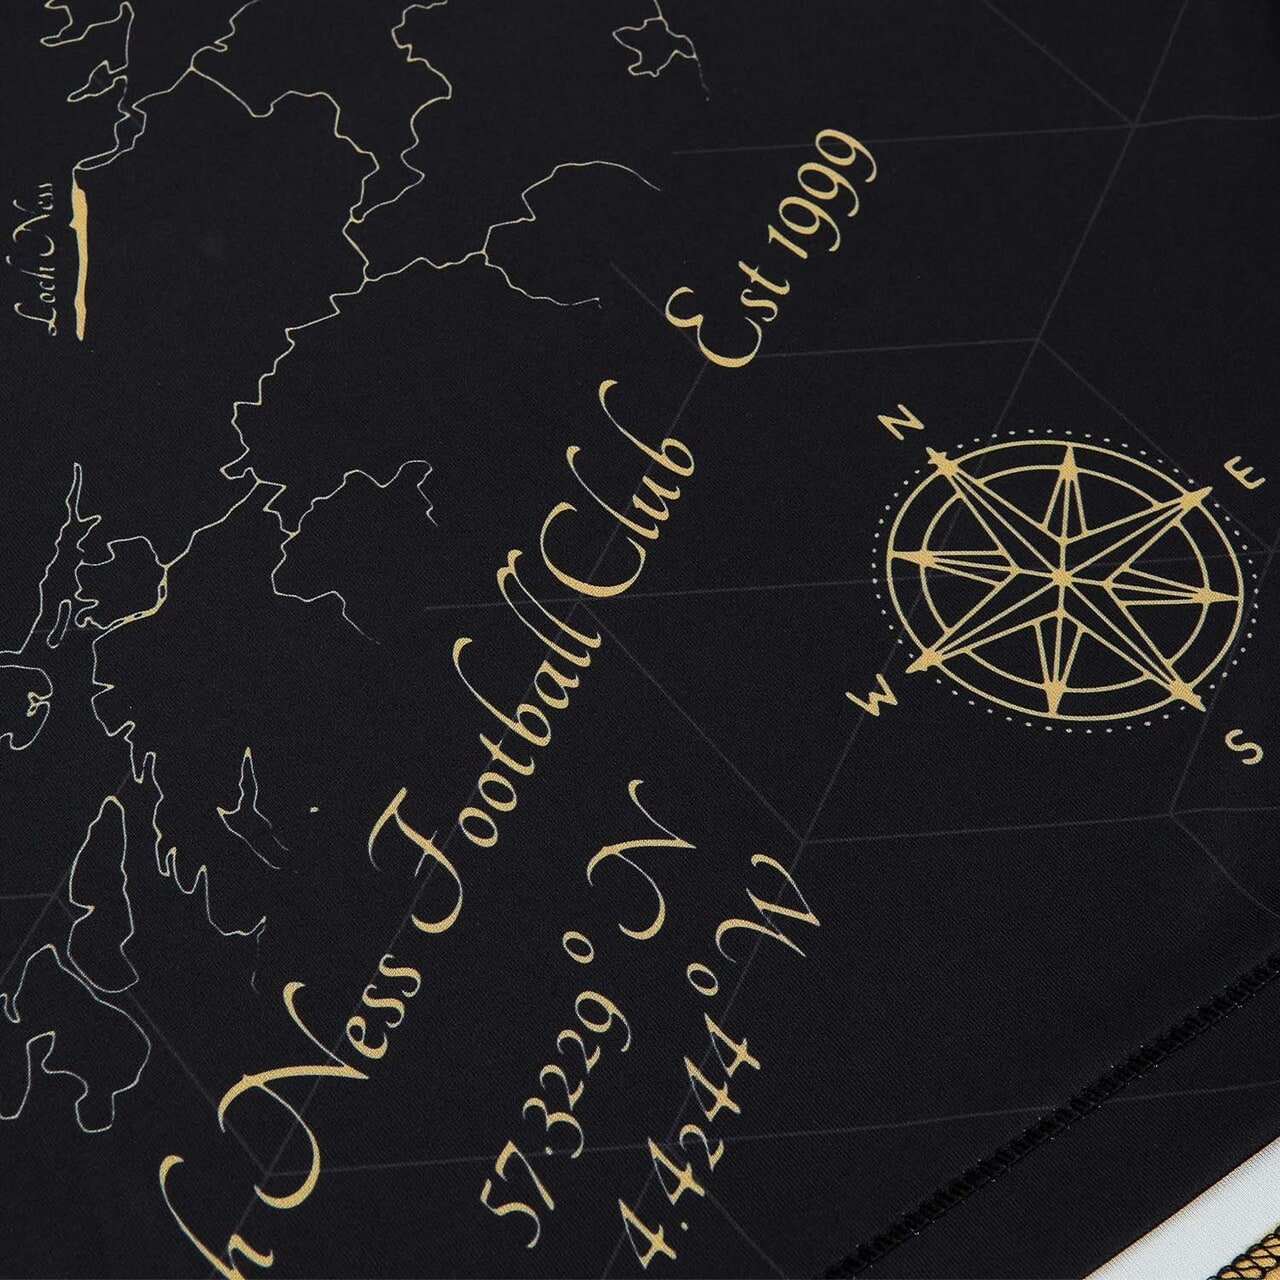 Loch Ness
h Ness Football Club Est 1999
57.3229° N
4.4244° W
N
E
W
S